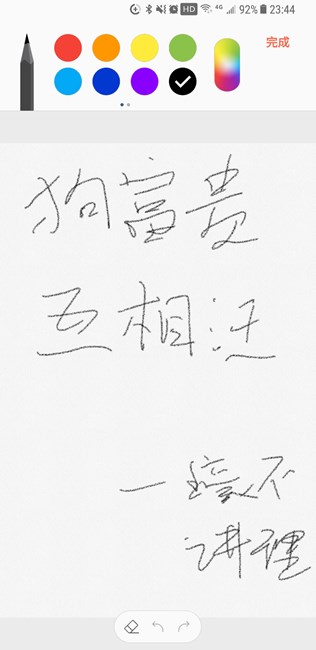 HD 4G 92% 23:44
完成
狗富贵
互相汪
一毫不
讲理